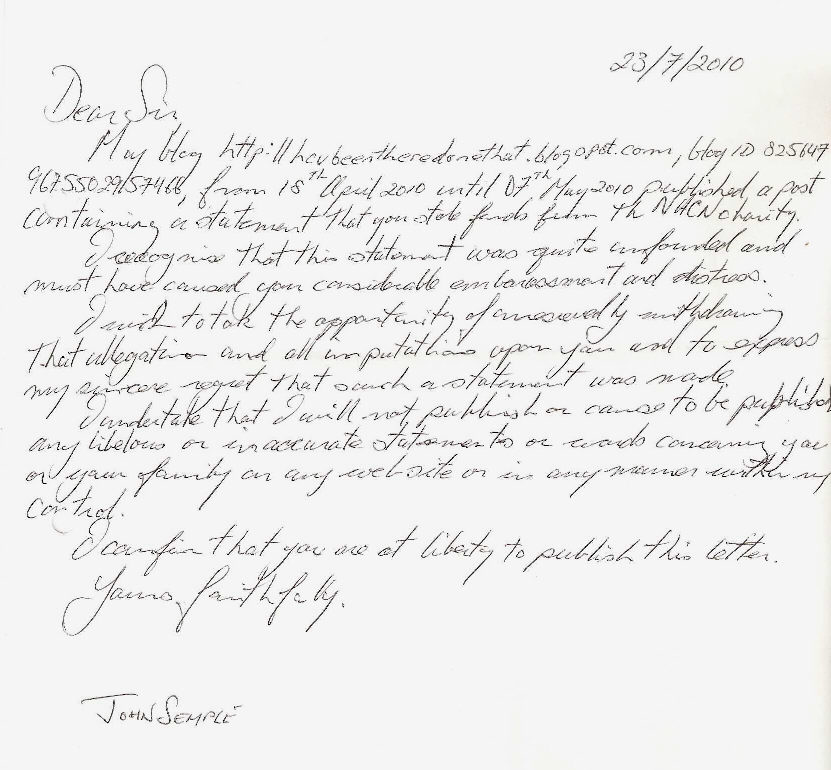 23/7/2010
Dear Sir
My blog http://havbeentheredonethat.blogspot.com, blog ID 825647
96755029157466, from 18th April 2010 until 07th May 2010 published a post
containing a statement that you stole funds from th NACN charity.
I recognise that this statement was quite unfounded and
must have caused you considerable embarassment and distress.
I wish to take the opportunity of unreservedly withdrawing
that allegation and all imputations upon you and to express
my sincere regret that such a statement was made.
I undertake that I will not publish or cause to be publish
any libelous or inaccurate statements or words concerning you
or your family on any web site or in any manner within my
control.
I confirm that you are at liberty to publish this letter.
Yours faithfully.
JOHN SEMPLE